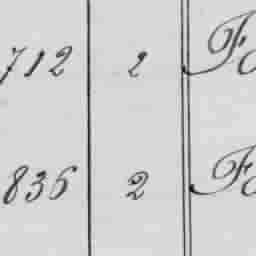 712 2 F
836 2 F